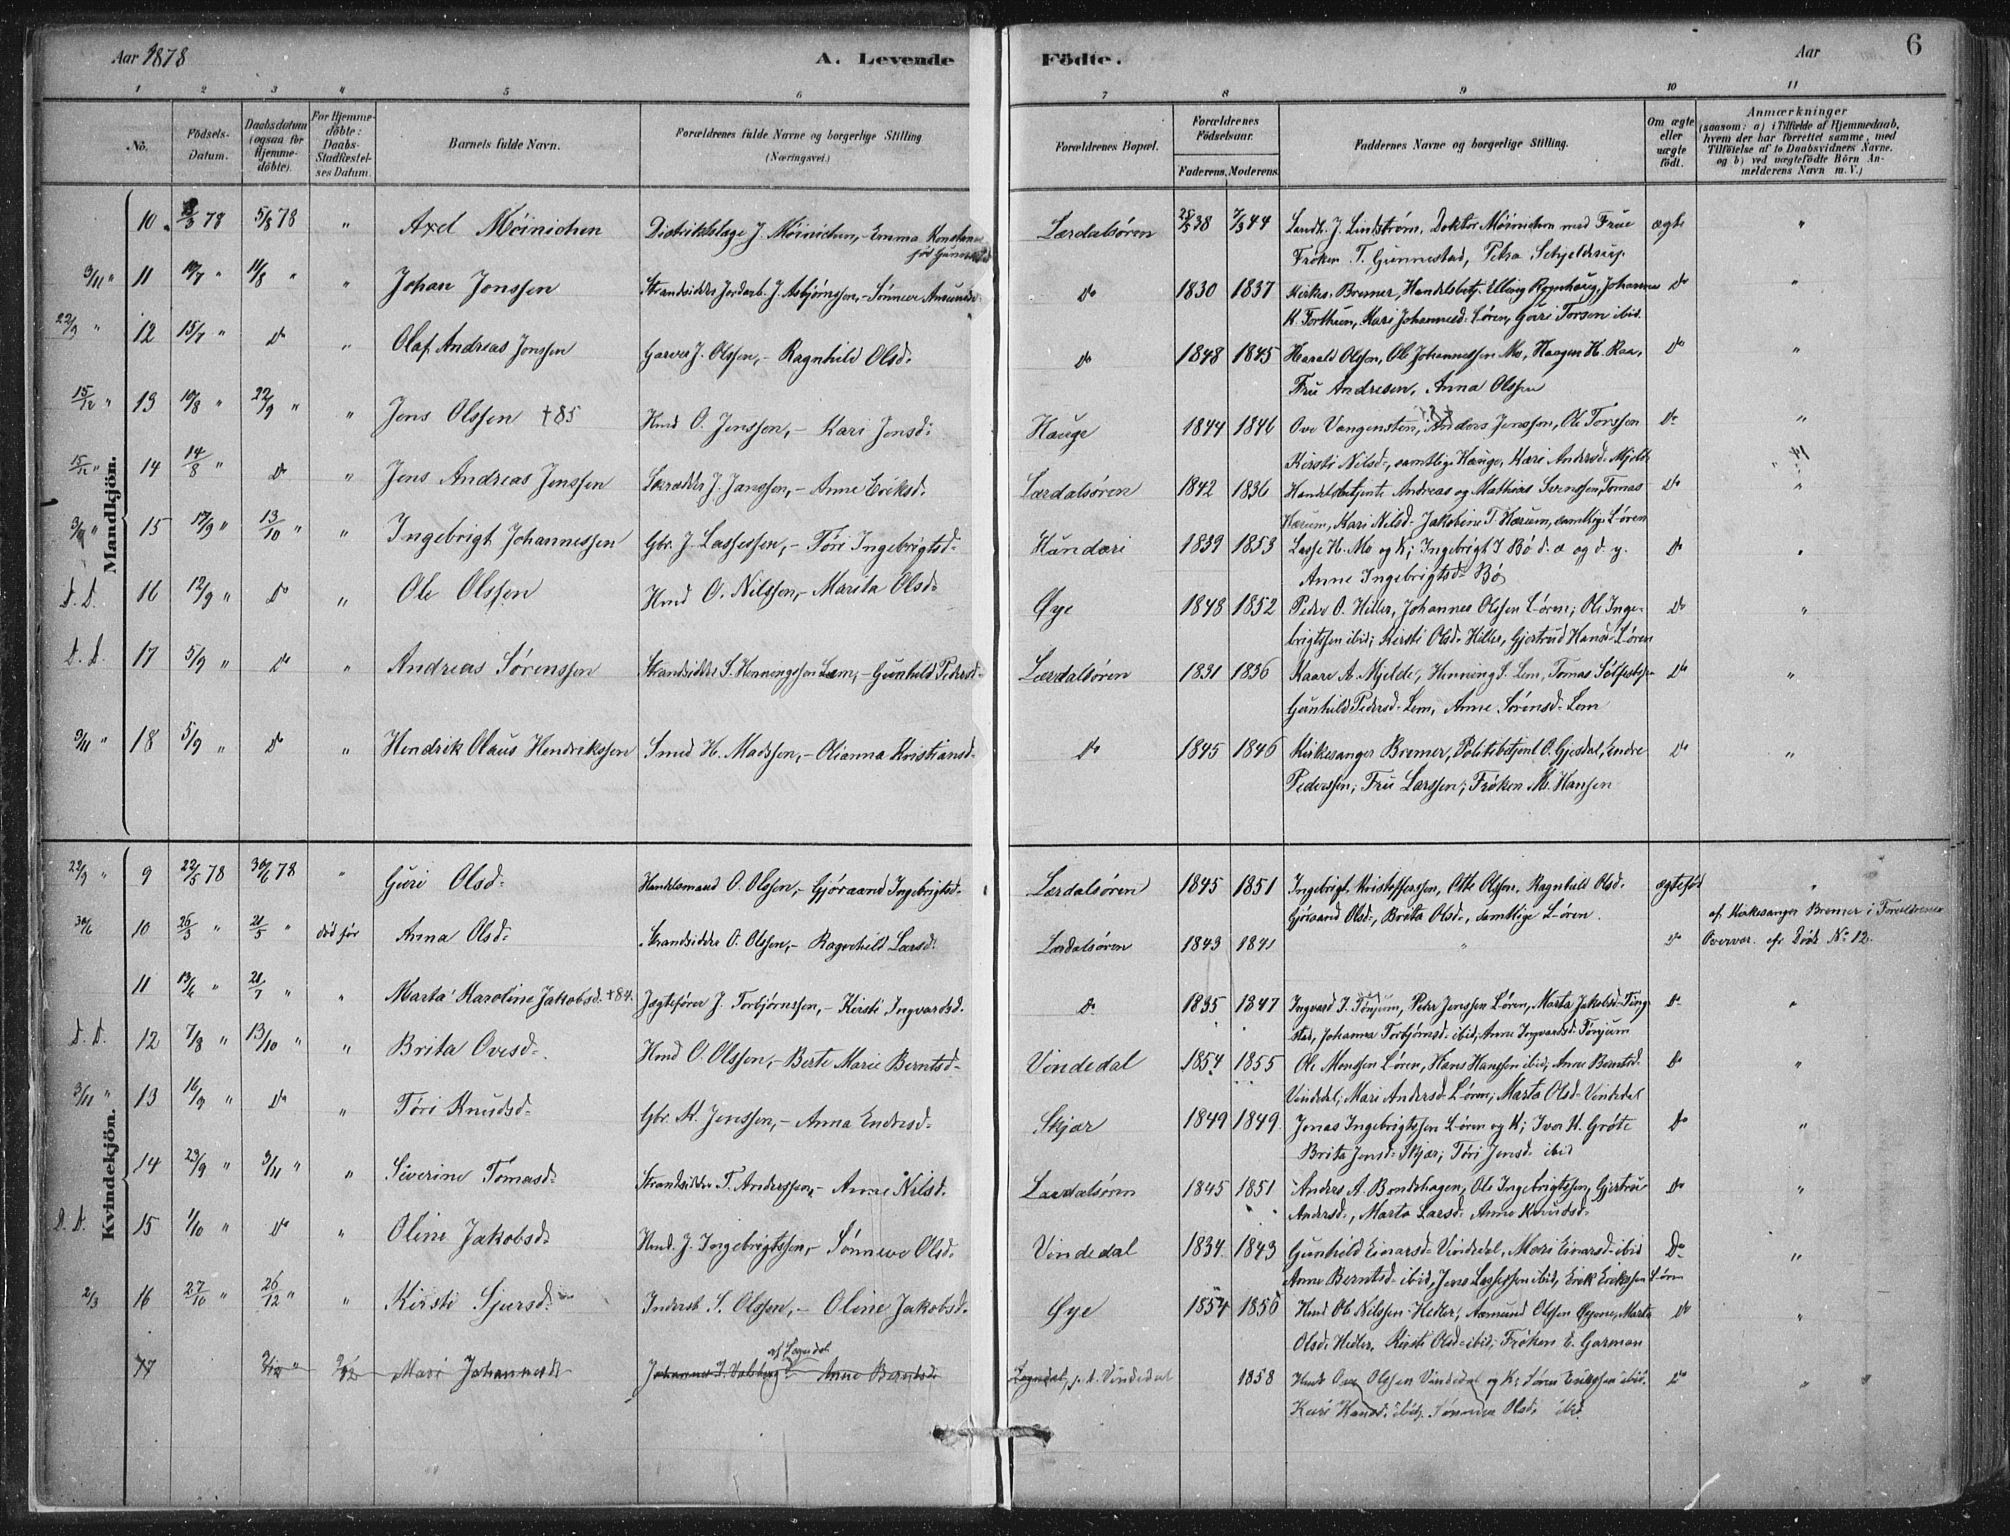 Aar 1878 A. Levende Födte. Aar 6
1 2 3 4 5 6 7 8 9 10 11
No. Födsels-Datum. Daabsdatum (ogsaa for Hjemmedöbte). For Hjemmedöbte: Daabs-Stadfæstelses Datum. Barnets fulde Navn. Forældrenes fulde Navne og borgerlige Stilling (Næringsvei.) Forældrenes Bopæl. Forældrenes Födselsaar. Faderens. Moderens. Faddernes Navne og borgerlige Stilling. Om ægte eller uægte födt. Anmærkninger (saasom: a) i Tilfælde af Hjemmedaab, hvem der har forrettet samme, med Tilföielse af to Daabsvidners Navne, og b) ved uægtefödte Börn Anmelderens Navn m. V.)
Mandkjön.
10 78 5/8 78 " Axel Möinichen Distriktslæge J. Möinichen, - Emma Konstance 38 44 Lærdalsören Landh. J. Lindström, Doktor Möinichen med Frue ægte "
Fröken T. Gunnestad, Petra Schjelderup
3/11 " 11 10/7 " 11/8 " " Johan Jonssen Strandsidder Jordarb. J. Asbjörnssen, - Sönneve Amunds Do 1830 1837 Kirkes. Bremer, Handelsbetj. Johannes Do "
K. Forthun, Kari Johannesd. Lören, Gori Torsen ibid.
22/9 " 12 15/7 " Do " Olaf Andreas Jonssen Garver J. Olssen, - Ragnhild Olsd. Do 1848 1845 Harald Olssen, Ole Johannessen Mo, Haagen H. Raa, Do "
Fru Andresen, Anna Olssen
15/12 " 13 10/8 " 22/9 " " Jens Olssen +85 Hmd O. Jenssen, - Kari Jensd: Hauge 1844 1846 Ove Vangensten, Anders Jenssen, Ole Torssen Do "
Kirsti Nilsd:, samtlige Hauge, Kari Andersd. Mjelde
15/12 " 14 14/8 " Do " Jens Andreas Jenssen J. Janssen, - Anne Eriksd. Lærdalsören 1842 1836 Handelsbetjente Andreas og Mathias Svenssen, Tomas Do "
Hærum, Kari Nilsd. Jakobine T. Hærum, samtlige Lören
3/9 " 15 17/9 " 13/10 " " Ingebrigt Johannessen Gbr. J. Lassessen, - Töri Ingebrigtsd. Hunderi 1839 1853 Lasse H. Mo og K; Ingebrigt I Bö d. æ og d. y. Do "
Anne Ingebrigtsd. Bö
D. D. 16 12/9 " Do " Ole Olssen Hmd O. Nilssen, - Marita Olsd: Øye 1848 1852 Peder O. Hiller, Johannes Olssen Lören; Ole Inge- Do "
brigtssen ibid; Kirsti Olsd. Hiller, Gjertrud Hansd. Lören
D. D. 17 5/9 " Do " Andreas Sörenssen Strandsidder S. Henningssen Lem, - Gunhild Pedersd. Lærdalsören 1831 1836 Kaare A. Mjelde, Henning S. Lem, Tomas Do "
Gunhild Pedersd. Lem, Anne Sörensd. Lem
3/11 " 18 5/9 " Do " Hendrik Olaus Hendrikssen Smed H. Madssen, - Olianna Kristiansd. Do 1845 1846 Kirkesanger Bremer, Politibetjent O. Gjesdal, Endre Do "
Pederssen; Fru Larssen; Fröken M. Hansen
Kvindekjön.
22/9 " 9 22/5 78 30/6 78 " Guri Olsd: Handelsmand O. Olssen, - Gjöraand Ingebrigtsd. Lærdalsören 1845 1851 Ingebrigt Kristofferssen, Otte Olssen, Ragnhild Olsd. ægteföd "
Gjöraand Olsd., Brita Olsd., samtlige Lören.
30/6 10 26/3 " 21/5 " död för Anna Olsd: Strandsidder O. Olssen, - Ragnhild Larsd: Lærdalsören 1843 1841 " Do af Kirkesanger Bremer i Forældrenes
Overvær. cfr Döde No 12.
11 13/6 " 21/7 " " Marta Karoline Jakobsd. +84. Jægtefører J. Torbjörnssen, - Kirsti Ingvardsd. Do 1835 1847 Ingvard I. Tönjum, Peder Jenssen Lören, Marta Jakobsd. Do "
Johanna Torbjörnsd. ibid, Anne Ingvardsd. Tönjum
D. D. 12 7/8 " 13/10 " " Brita Ovesd. Hmd O. Olssen, - Berte Marie Berntsd. Vindedal 1854 1855 Ole Monssen Lören, Hans Hanssen ibid, Anne Berntsd. Do "
Vindedal; Mari Andersd. Lören; Marta Olsd. Vindedal
3/11 " 13 16/9 " Do " Töri Knudsd. Gbr. K. Jenssen, - Anna Endresd. Skjær 1849 1849 Jonas Ingebrigtssen Lören og K; Ivar K. Gröte Do "
Brita Jensd. Skjær; Töri Jensd. ibid
14 23/9 " 3/11 " " Siverine Tomasd. Strandsidder T. Anderssen, - Anne Nilsd. Lærdalsören 1845 1851 Anders A. Bondehagen, Ole Ingebrigtssen, Gjertru- Do "
Andersd., Marta Larsd. Anne Knudsd.
D. D. 15 1/10 " Do " Oline Jakobsd. Hmd. J. Ingebrigtssen, - Sönneve Olsd. Vindedal 1834 1843 Gunhild Einarsd. Vindedal, Mari Einarsd. ibid Do "
Anne Berntsd. ibid, Jens Lassessen ibid, Erik Erikssen Lören
2/3 16 27/10 " 26/12 " " Kirsti Sjursd: Inderst S. Olssen, - Oline Jakobsd. Øye 1854 1856 Hmd Ole Nilssen Heller, Aamund Olssen Øyene, Marta Do "
Olsd. Heller, Kirsti Olsd. ibid; Fröken E. Garman
17 Mari Johannesd. af Sogndal Johannes Anne Berntsd. Sogndal, p. t. Vindedal 1858 Hmd: Ove Olssen Vindedal og K; Sören Erikssen ibid. Do "
Kari Hansd. ibid; Sönneva Olsd. ibid.